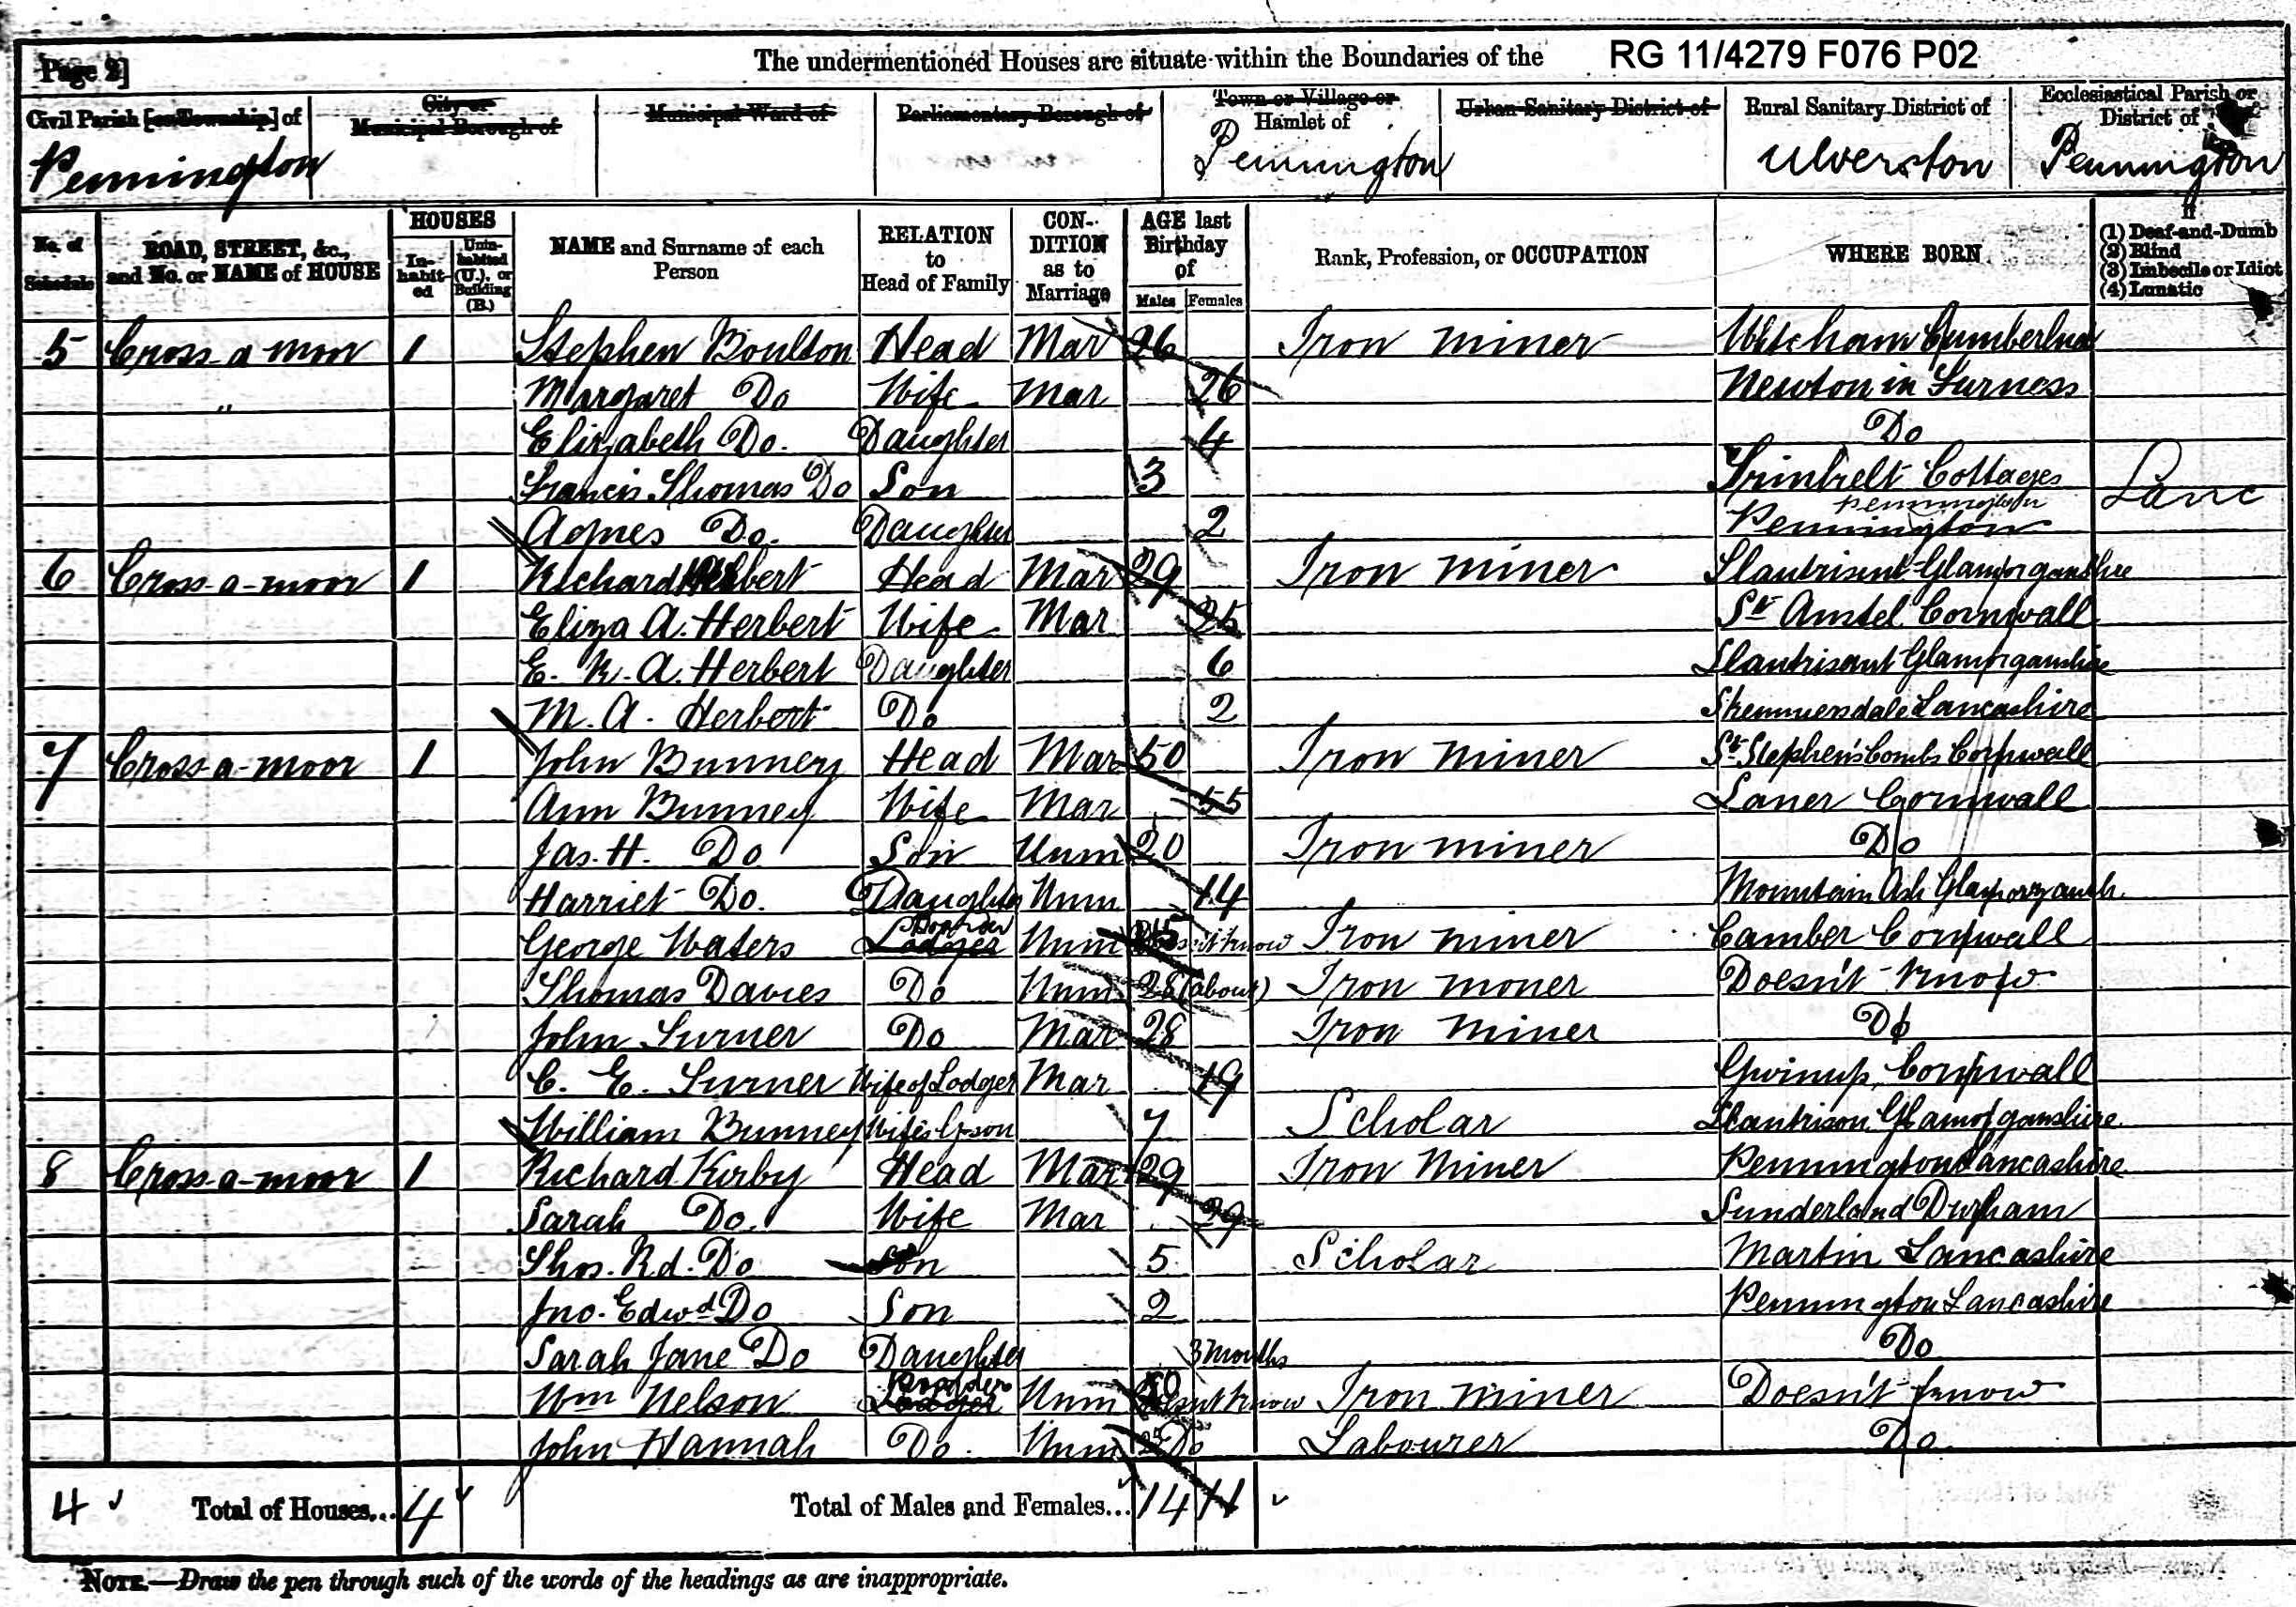 Page 2]
The undermentioned Houses are situate within the Boundaries of the RG 11/4279 F076 P02
Civil Parish [or Township] of City or Municipal Borough of Municipal Ward of Parliamentary Borough of Town or Village or Hamlet of Urban Sanitary District of Rural Sanitary District of Ecclesiastical Parish or District of
Pennington Pennington Ulverston Pennington
No. of Schedule ROAD, STREET, &c., and No. or NAME of HOUSE HOUSES Inhabited Uninhabited (U.), or Building (B.) NAME and Surname of each Person RELATION to Head of Family CONDITION as to Marriage AGE last Birthday of Males Females Rank, Profession, or OCCUPATION WHERE BORN If (1) Deaf-and-Dumb (2) Blind (3) Imbecile or Idiot (4) Lunatic
5 Cross-a-moor 1 Stephen Boulton Head Mar 26 Iron miner Cumberlnd
" Margaret Do Wife Mar 26 Newton in Furness
Elizabeth Do. Daughter 4 Do
Francis Thomas Do Son 3 Cottages Pennington Lanc
Agnes Do. Daughter 2 Pennington
6 Cross-a-moor 1 Richard Herbert Head Mar 29 Iron miner Llantrisant Glamorganshire
Eliza A. Herbert Wife Mar 25 St Austel Cornwall
E. K. A. Herbert Daughter 6 Llantrisant Glamorganshire
M. A. Herbert Do 2 Skemmersdale Lancashire
7 Cross-a-moor 1 John Bunney Head Mar 50 Iron miner St Stephen's Combs Cornwall
Ann Bunney Wife Mar 55 Laner Cornwall
Jas. H. Do Son Unm 20 Iron miner Do
Harriet Do. Daughter Unm 14 Mountain Ash Glamorgansh.
George Waters Lodger Boarder Unm Doesn't know Iron miner Camber Cornwall
Thomas Davies Do Unm 28 (about) Iron moner Doesn't know
John Turner Do Mar 28 Iron miner Do
C. E. Turner Wife of Lodger Mar 19 Gwinup, Cornwall
William Bunney Wife's G-son 7 Scholar Llantrison Glamorganshire
8 Cross-a-moor 1 Richard Kirby Head Mar 29 Iron Miner Pennington Lancashire
Sarah Do. Wife Mar 29 Sunderland Durham
Thos. Rd. Do Son 5 Scholar Martin Lancashire
Jno. Edwd Do Son 2 Pennington Lancashire
Sarah Jane Do Daughter 3 Months Do
Wm Nelson Lodger Boarder Unm Doesn't know Iron miner Doesn't know
John Hannah Do. Unm 25 Do Labourer Do
4 Total of Houses... 4 Total of Males and Females... 14 11
NOTE.—Draw the pen through such of the words of the headings as are inappropriate.